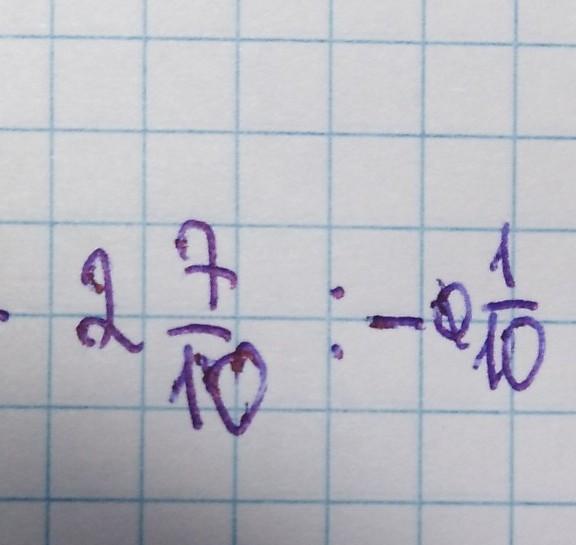 2 7/10 : - 0 1/10